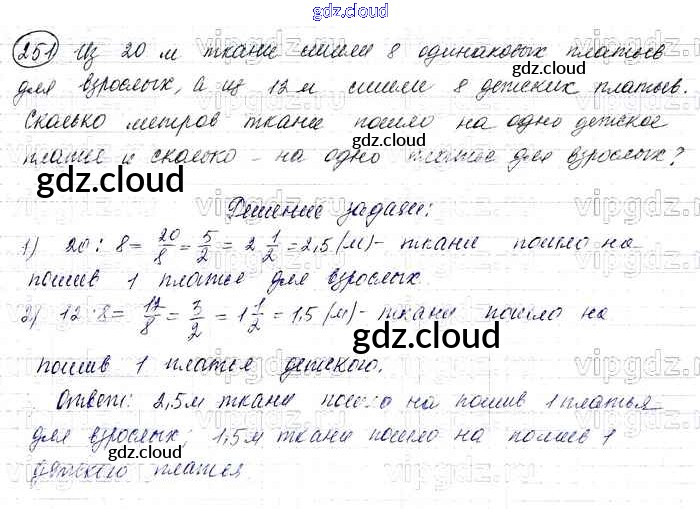 gdz.cloud
251) Из 20 м ткани сшили 8 одинаковых платьев
gdz.cloud
для взрослых, а из 12 м сшили 8 детских платьев.
Сколько метров ткани пошло на одно детское
платье и сколько - на одно платье для взрослых?
gdz.cloud
gdz.cloud
Решение задачи:
1) 20 : 8 = 20/8 = 5/2 = 2 1/2 = 2,5 (м) - ткани пошло на
пошив 1 платье для взрослых.
2) 12 : 8 = 12/8 = 3/2 = 1 1/2 = 1,5 (м) - ткани пошло на
gdz.cloud
пошив 1 платья детского.
Ответ: 2,5м ткани пошло на пошив 1 платья
gdz.cloud
для взрослых; 1,5м ткани пошло на пошив 1
детского платья
gdz.cloud
gdz.cloud